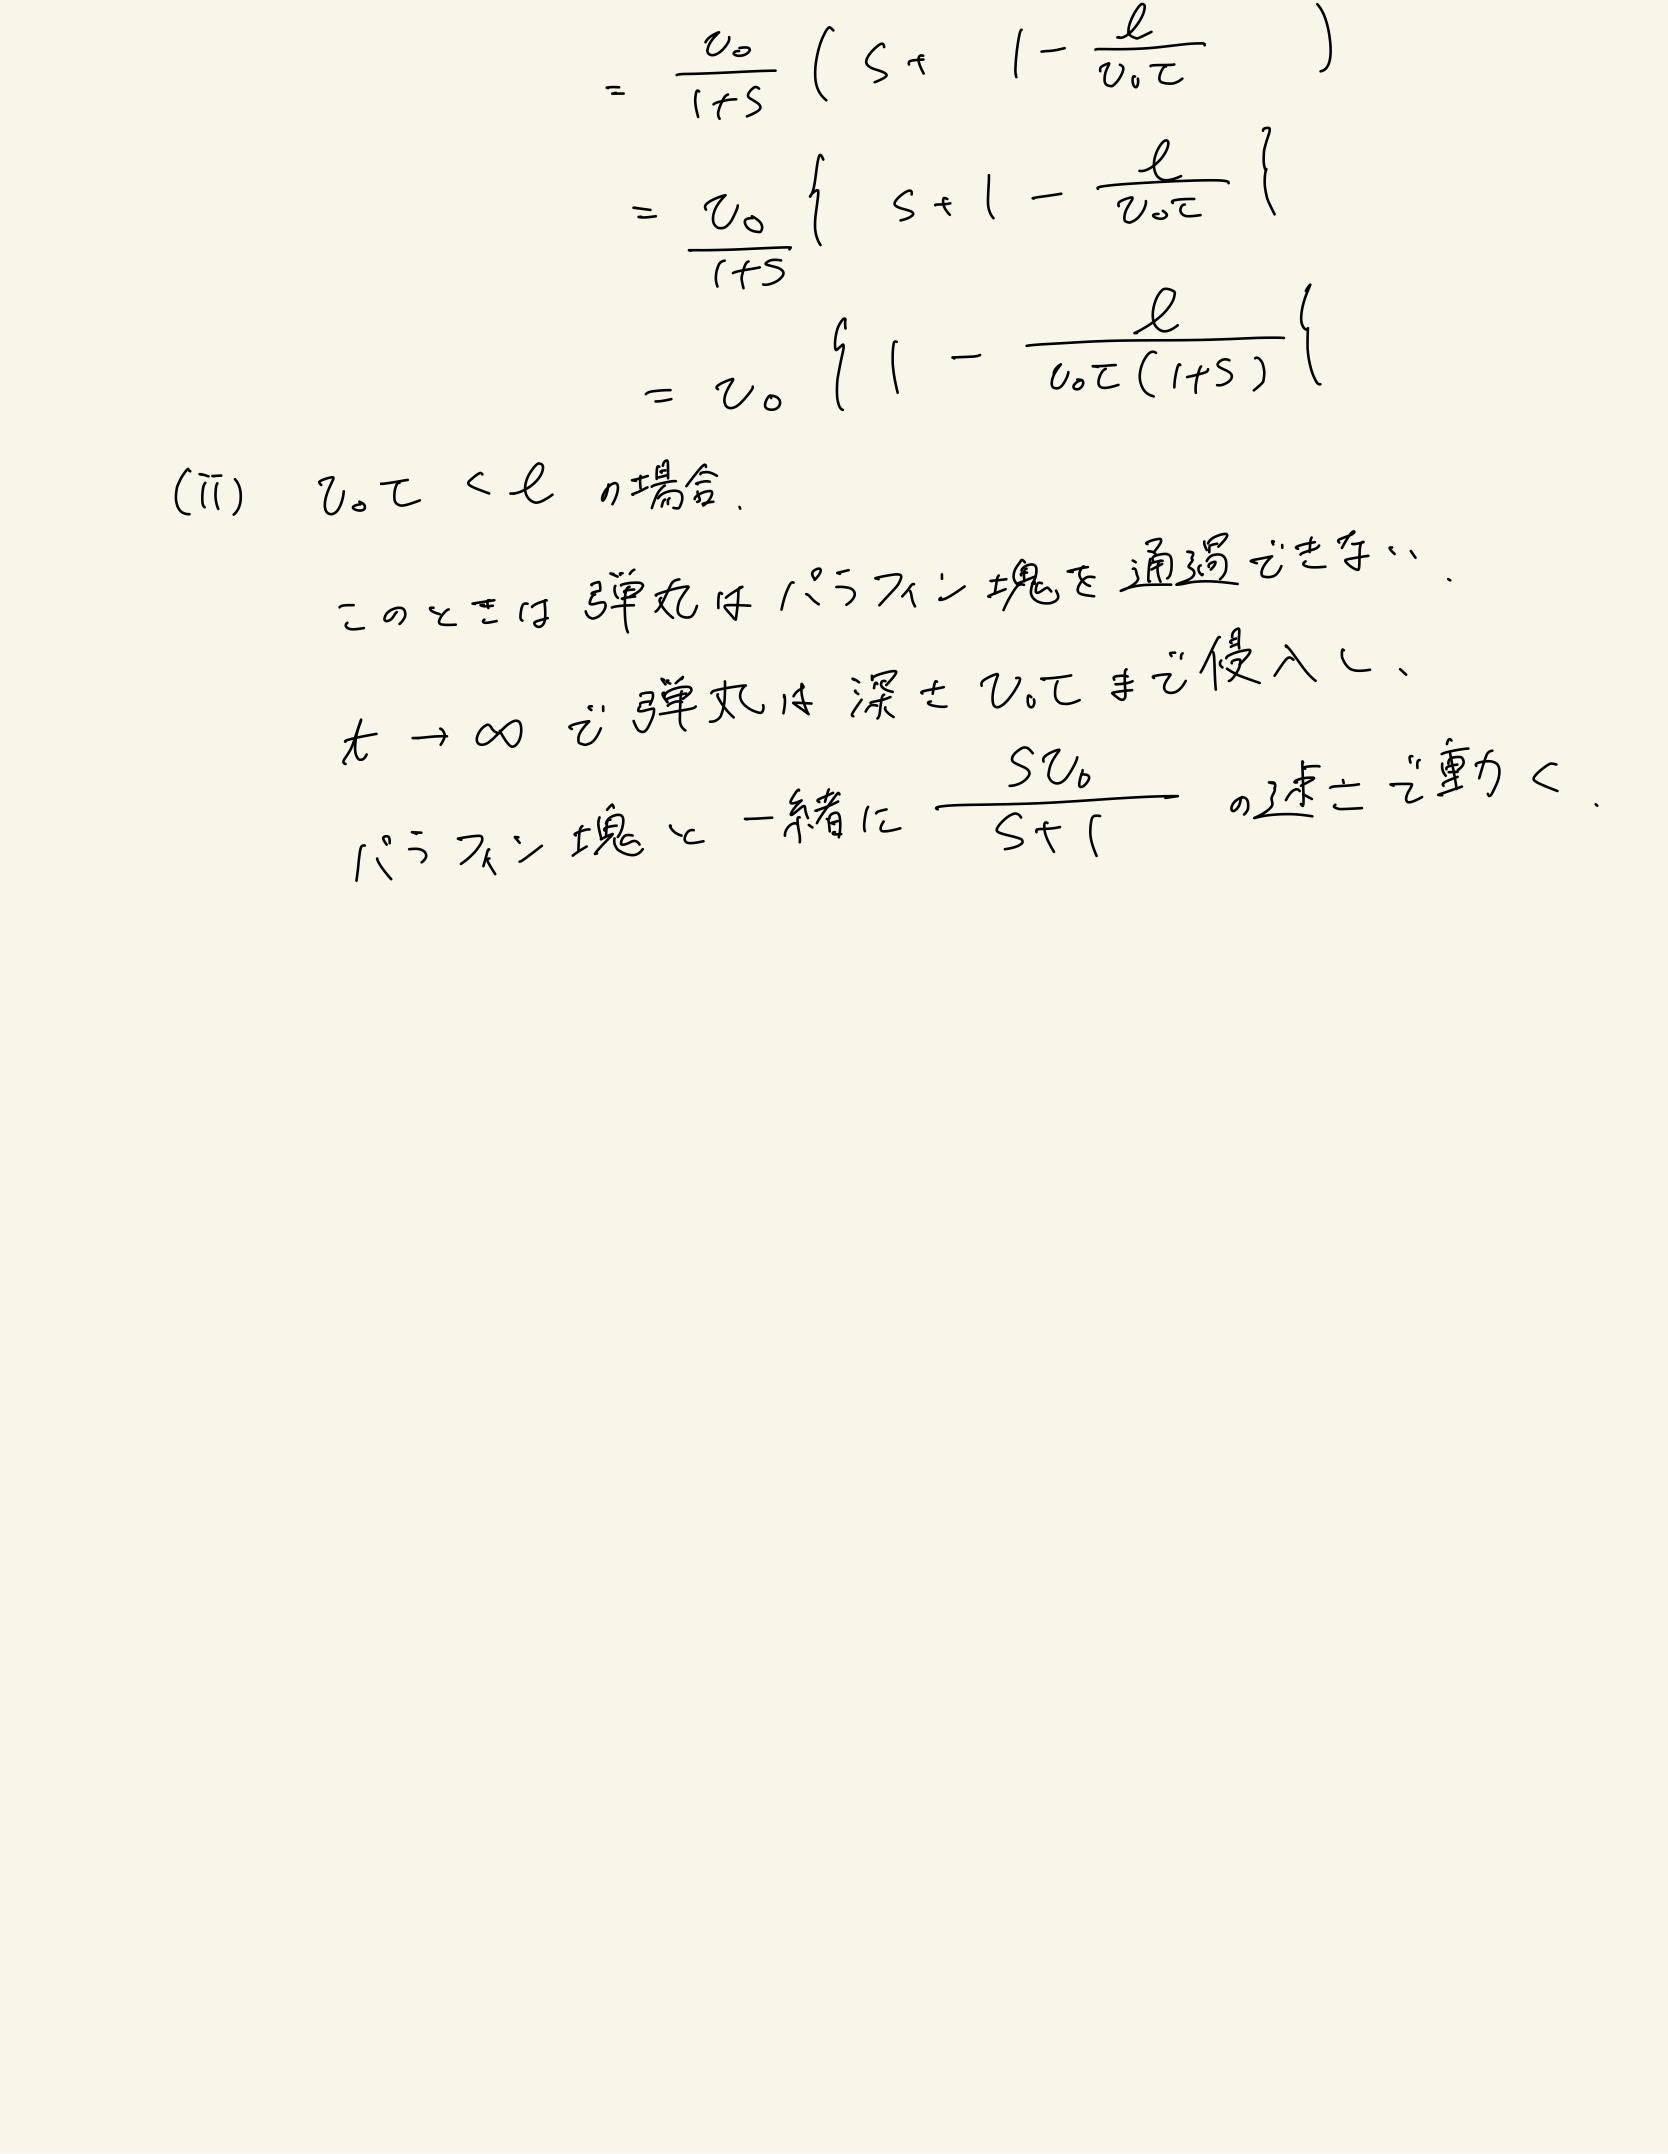 = v₀/(1+s) ( s + 1 - ℓ/(v₀τ) )
= v₀/(1+s) { s + 1 - ℓ/(v₀τ) }
= v₀ { 1 - ℓ/(v₀τ(1+s)) }
(ii) v₀τ < ℓ の場合.
このときは弾丸はパラフィン塊を通過できない.
t → ∞ で弾丸は深さ v₀τ まで侵入し、
パラフィン塊と一緒に sv₀/(s+1) の速さで動く.